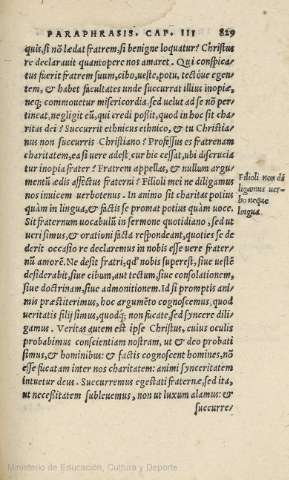 PARAPHRASIS. CAP. III 829
quis, si nō lædat fratrem, si benigne loquatur? Christus
re declarauit quaniopere nos amaret. Qui conspica-
tus fuerit fratrem suum, cibo, ueste, potu, tectóue egen-
tem, & habet facultates unde succurrat illius inopiæ,
neq; commouetur misericordia, sed uelut ad se nō per-
tineat, negligit eū, qui credi possit, quod in hoc sit cha-
ritas dei? Succurrit ethnicus ethnico, & tu Christia-
nus non succurris Christiano? Professus es fratrenam
charitatem, ea si uere adest, cur hic cessat, ubi discrucia
tur inopia frater? Fratrem appellas, & nullum argu-
mentū ædis affectus fraterni? Filioli mei ne diligamus
nos inuicem uerbotenus. In animo sit charitas potius
quàm in lingua, & factis se promat potius quàm uoce.
Sit fraternum uocabulū in sermone quotidiano, sed ad
ueri simus, & orationi facta respondeant, quoties se de
derit occasio re declaremus in nobis esse uere frater-
nū amorē. Ne desit fratri, qd' nobis superest, siue uestē
desiderabit, siue cibum, aut tectum, siue consolationem,
siue doctrinam, siue admonitionem. Id si promptis ani-
mis præstiterimus, hoc argumēto cognoscemus, quod
ueritatis filij simus, quodq́; non fucate, sed syncere dili
gamus. Veritas autem est ipse Christus, cuius oculis
probabimus conscientiam nostram, ut & deo probati
simus, & hominibus: & factis cognoscent homines, nō
esse fucatam inter nos charitatem: animi synceritatem
intuetur deus. Succurremus egestati fraternæ, sed ita,
ut necessitatem subleuemus, non ut luxum alamus: &
succurre/
Filioli non di
ligamus uer-
bo neque
lingua.
Ministerio de Educación, Cultura y Deporte